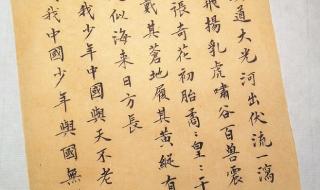 道大光河出伏流一瀉
飛揚乳虎嘯谷百獸震
張奇花初胎矞：皇：干
戴其蒼地履其黃縱有
似海来日方長
我少年中國與天不老
我中國少年與國無